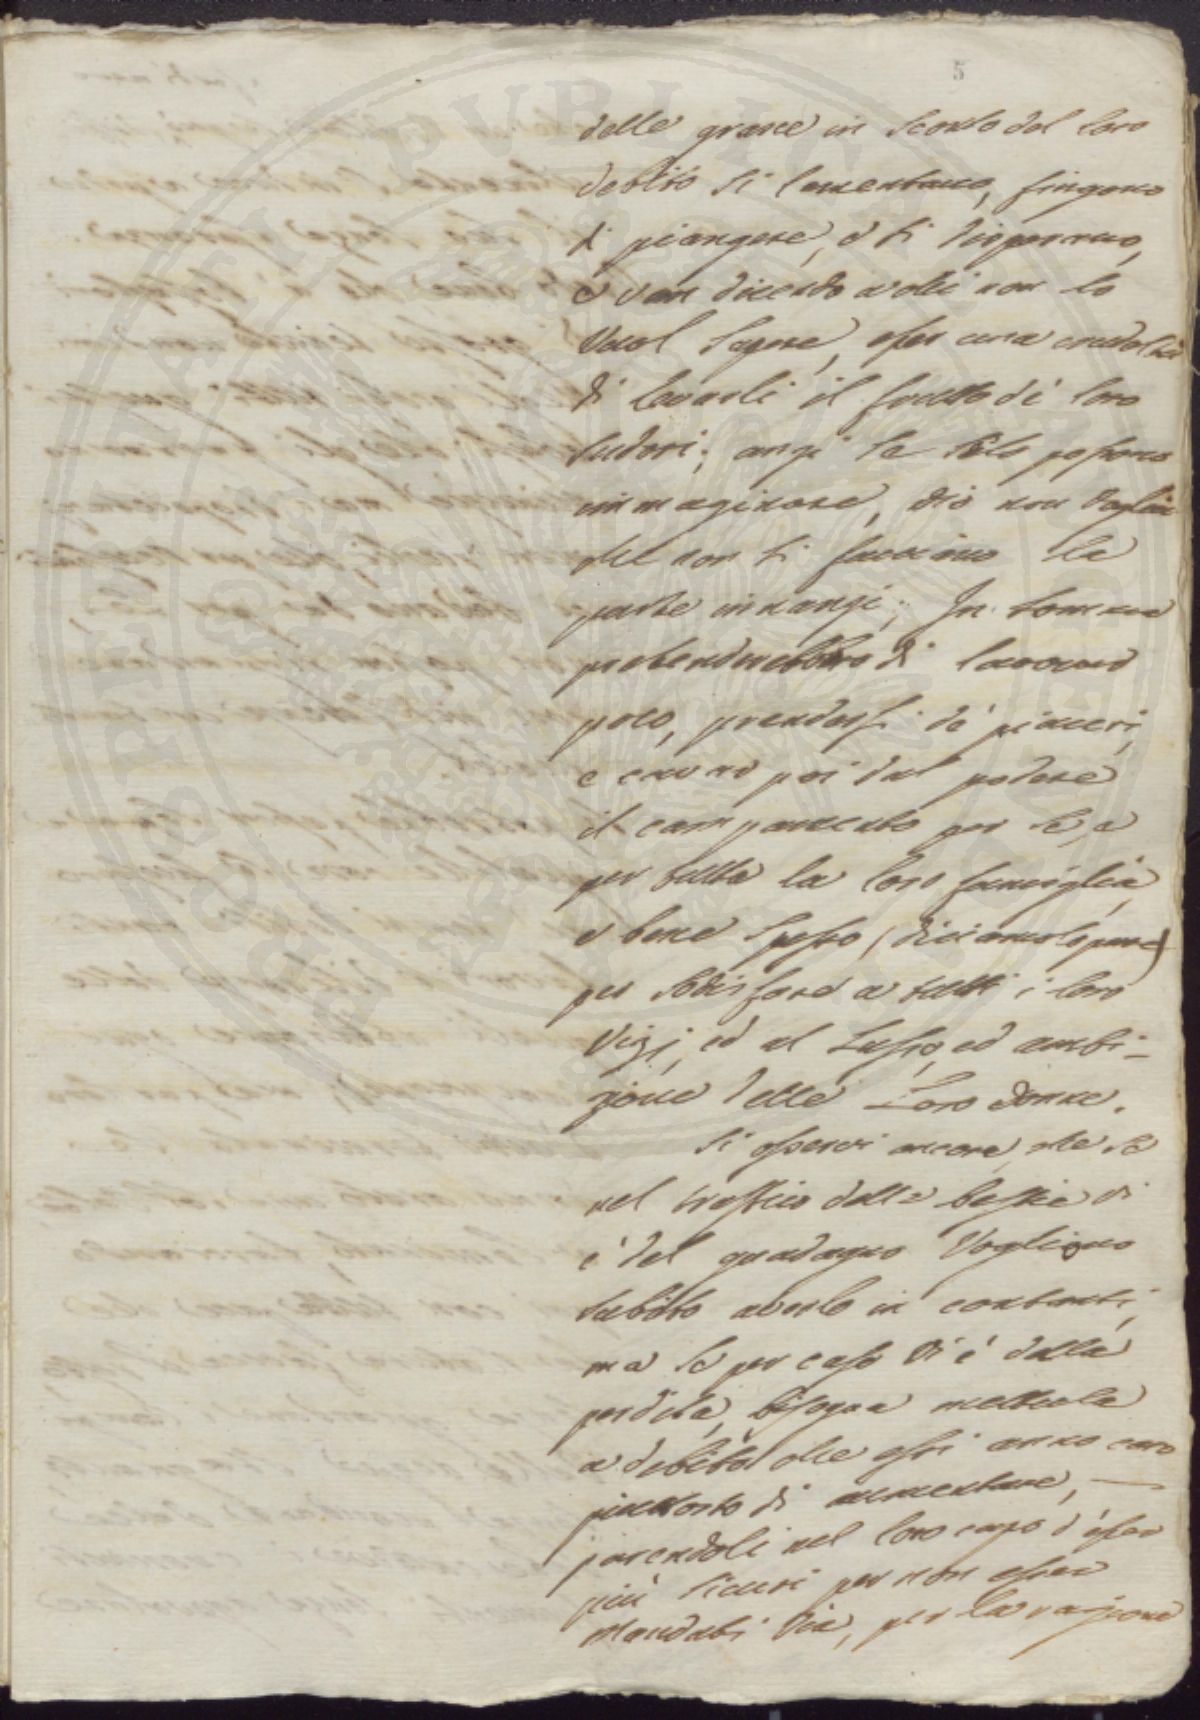 5
delle grasce in sconto del loro
debito si lamentano, fingono
di piangere, e si disperano,
e van dicendo a voi non lo
vuol sapere, esser una crudeltà
di levarli il frutto de' loro
sudori; anzi se solo possono
immaginare, dio non voglia
che non si faccino la
parte innanzi; In somma
pretenderebbero di lavorar
poco, prendersi de' piaceri,
e cavar poi dal podere
il campamento per se, e
per tutta la loro famiglia,
e bene spesso (diciamolo pure)
per sodisfare a tutti i loro
vizj, ed al Lusso, ed ambi-
zione delle Loro donne.
Si osservi ancora, che se
nel traffico delle bestie vi
è del guadagno vogliono
subito averlo in contanti,
ma se per caso vi è della
perdita, bisogna metterla
a debito che essi anno caro
piuttosto di aumentare,
parendoli nel loro capo d'esser
più sicuri per non esser
mandati via, per la ragione
PVBLICA